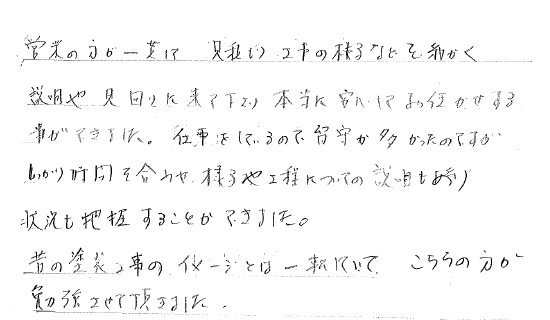 営業の方が一貫して 見積り 工事の様子などを細かく
説明や 見回りに来て下さり 本当に安心してお任かせする
事ができました。仕事をしているので留守が多かったのですが
しっかり時間を合わせ 様子や工程についての説明もあり
状況も把握することができました。
昔の塗装工事のイメージとは一転していて こちらの方が
勉強させて頂きました。